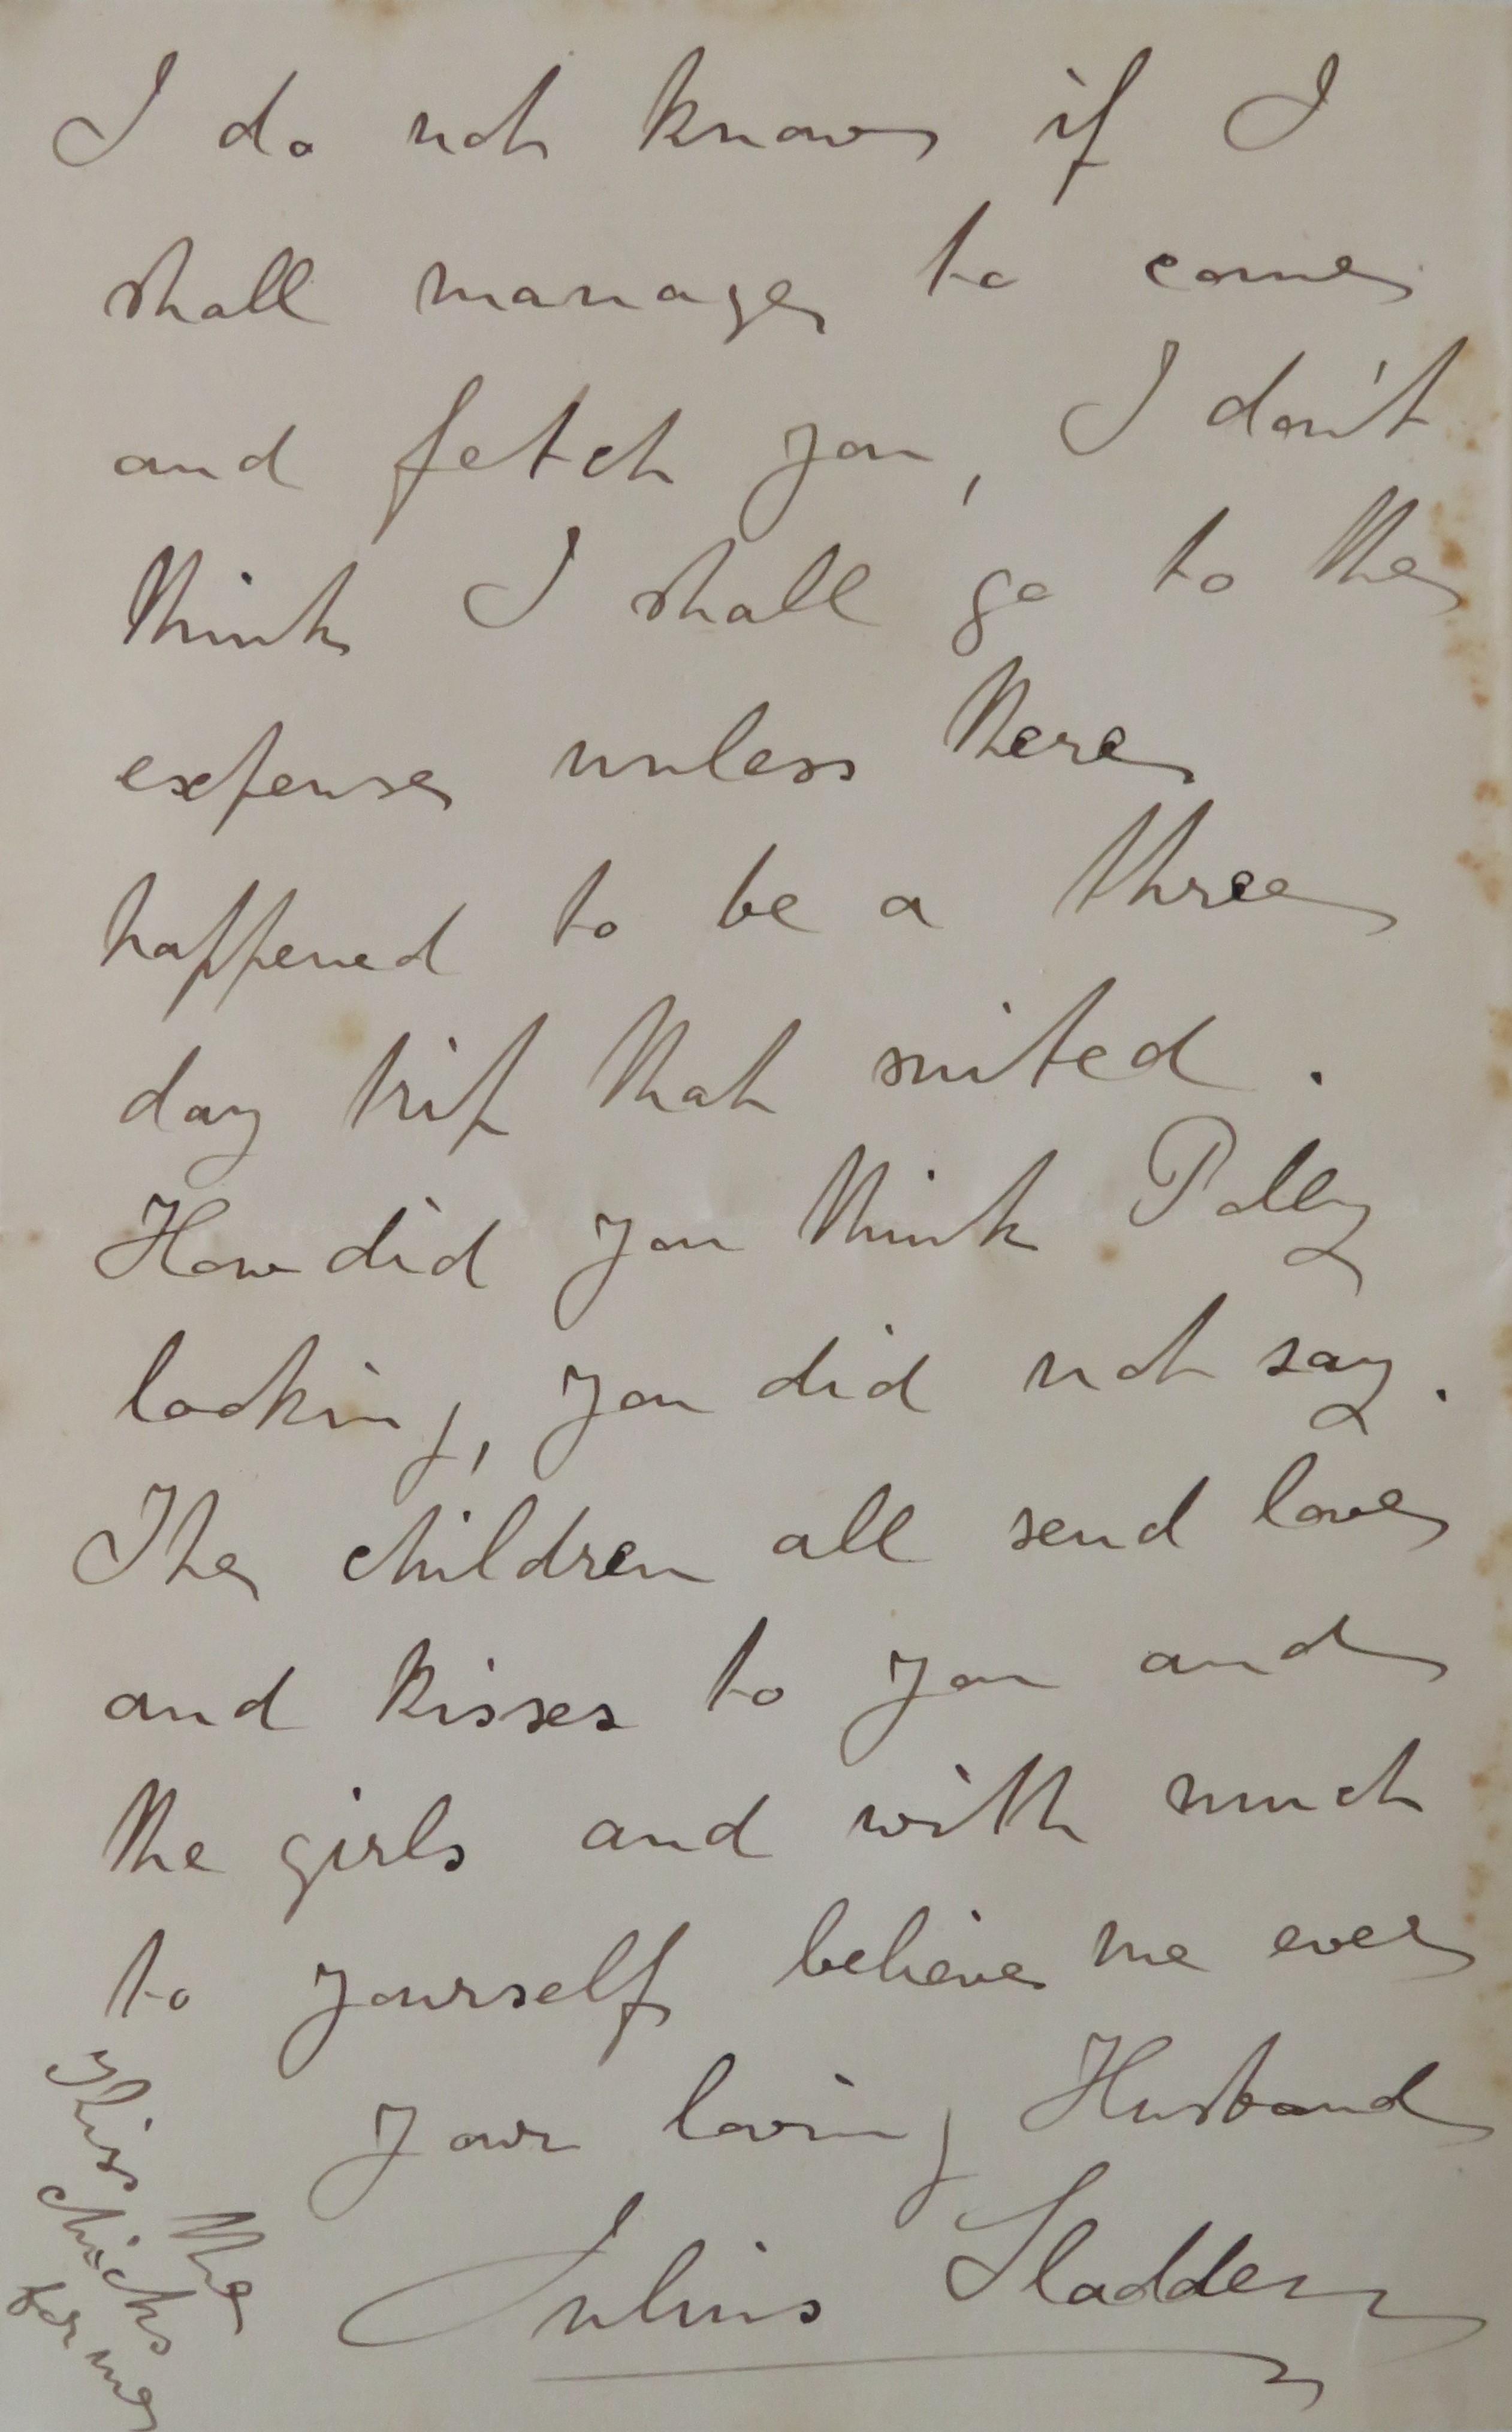 I do not know if I
shall manage to come
and fetch you, I don't
think I shall go to the
expense unless there
happened to be a three
day trip that suited.
How did you think Polly
looking, you did not say.
The children all send love
and kisses to you and
the girls and with much
to yourself believe me ever
Your loving Husband
Julius Sladden
Kiss the
chicks
for me